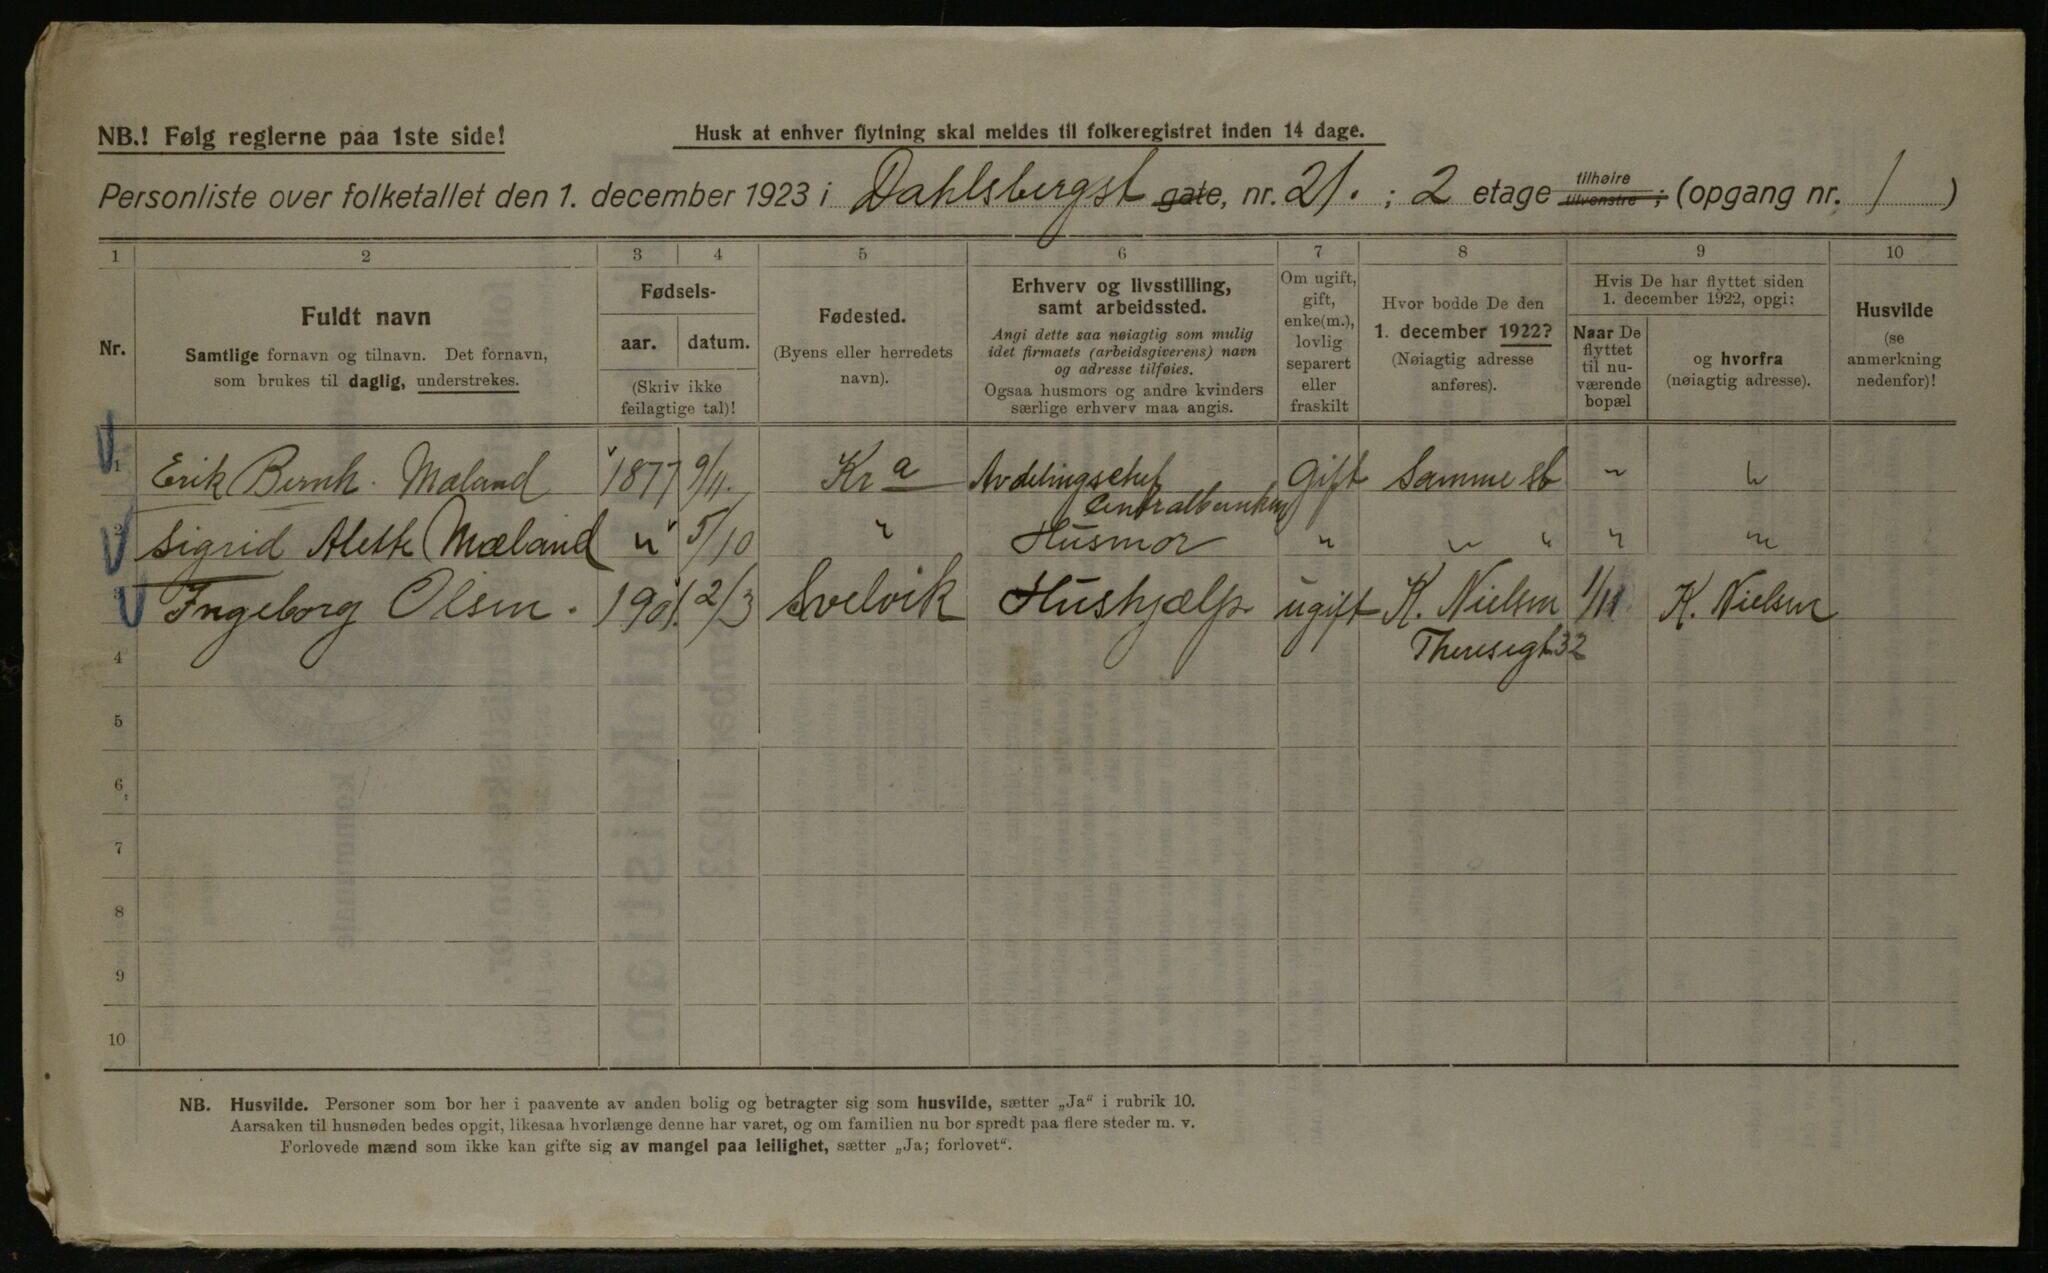 NB.! Følg reglerne paa 1ste side!
Husk at enhver flytning skal meldes til folkeregistret inden 14 dage.
Personliste over folketallet den 1. december 1923 i Dahlsbergst gate, nr. 21. ; 2 etage tilhøire tilvenstre ; (opgang nr. 1 )
1 2 3 4 5 6 7 8 9 10
Nr.
Fuldt navn
Samtlige fornavn og tilnavn. Det fornavn,
som brukes til daglig, understrekes.
Fødsels-
aar. datum.
(Skriv ikke
feilagtige tal)!
Fødested.
(Byens eller herredets
navn).
Erhverv og livsstilling,
samt arbeidssted.
Angi dette saa nøiagtig som mulig
idet firmaets (arbeidsgiverens) navn
og adresse tilføies.
Ogsaa husmors og andre kvinders
særlige erhverv maa angis.
Om ugift,
gift,
enke(m.),
lovlig
separert
eller
fraskilt
Hvor bodde De den
1. december 1922?
(Nøiagtig adresse
anføres).
Hvis De har flyttet siden
1. december 1922, opgi:
Naar De
flyttet
til nu-
værende
bopæl
og hvorfra
(nøiagtig adresse).
Husvilde
(se
anmerkning
nedenfor)!
1 Erik Bernh. Mæland 1877 9/11. Kra Avdelingschef Gift Samme st " "
Centralbanken
2 Sigrid Alette Mæland " 5/10 " Husmor " " " " "
3 Ingeborg Olsen. 1901. 2/3 Svelvik Hushjælp ugift K. Nielsen 1/11 K. Nielsen
4 Theresegt 32
5
6
7
8
9
10
NB. Husvilde. Personer som bor her i paavente av anden bolig og betragter sig som husvilde, sætter „Ja“ i rubrik 10.
Aarsaken til husnøden bedes opgit, likesaa hvorlænge denne har varet, og om familien nu bor spredt paa flere steder m. v.
Forlovede mænd som ikke kan gifte sig av mangel paa leilighet, sætter „Ja; forlovet“.